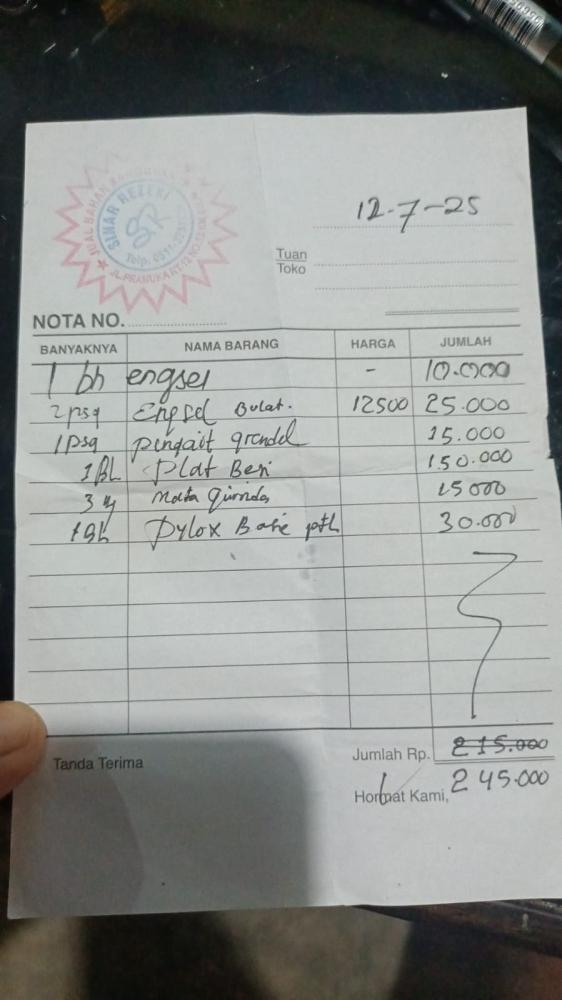 JUAL BAHAN BANGUNAN
SINAR REZEKI
SR
12-7-25
Tuan
Toko
NOTA NO.
BANYAKNYA NAMA BARANG HARGA JUMLAH
1 bh engsel - 10.000
2 psg Engsel Bulat. 12500 25.000
1 psg pengait grendel 15.000
1 BL Plat Besi 150.000
3 Mata Girinda 15000
1 BL Pylox 30.000
Jumlah Rp. 215.000
245.000
Tanda Terima
Hormat Kami,